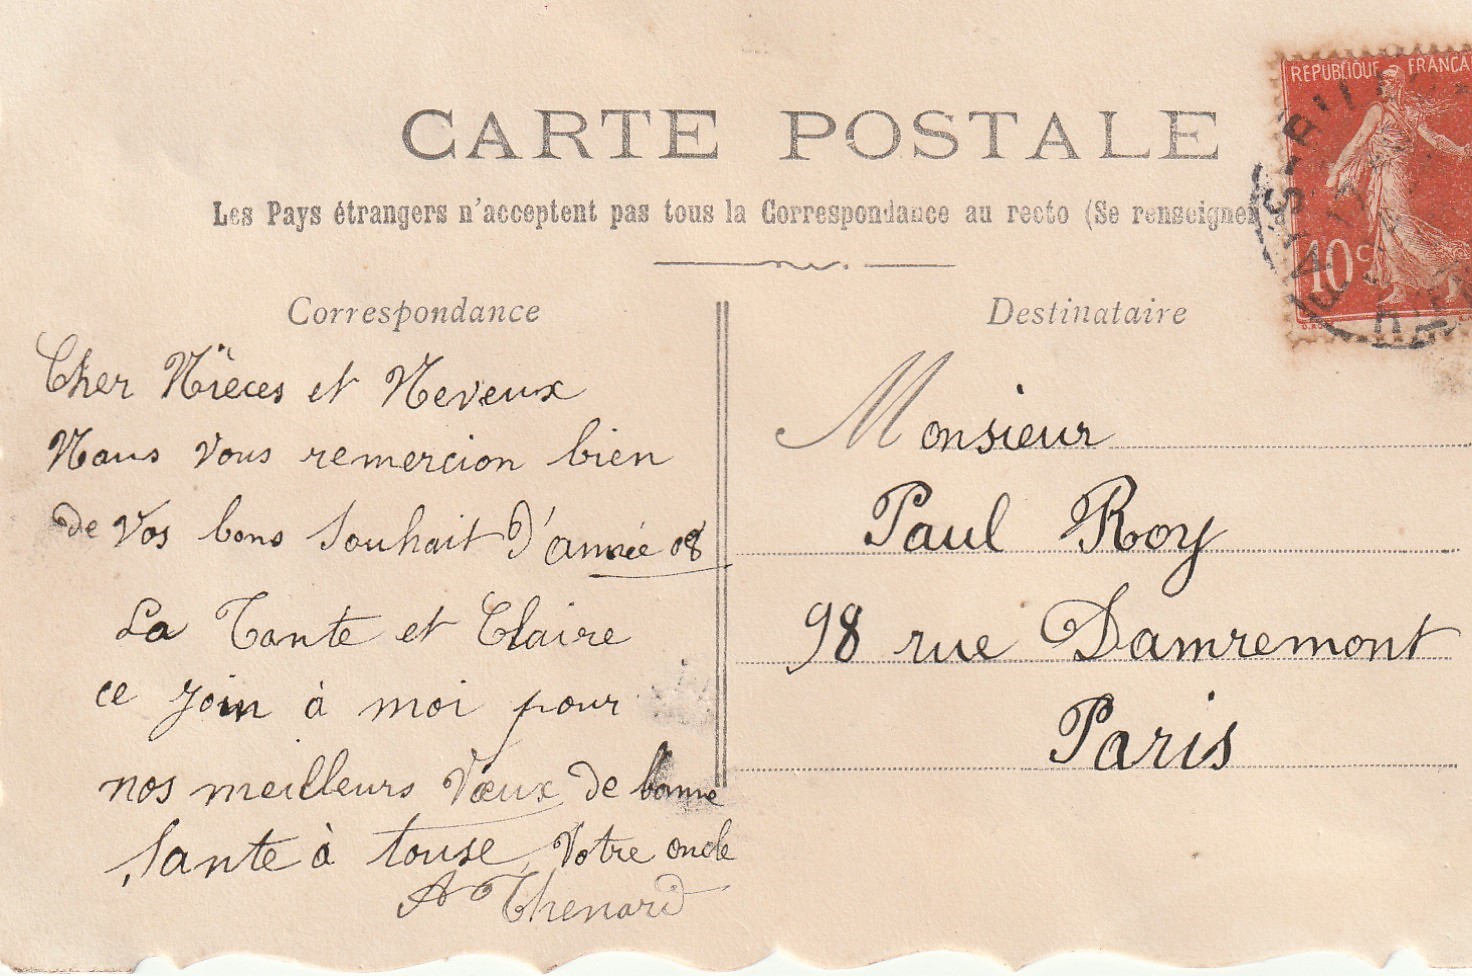 REPUBLIQUE FRANCAI
10c
CARTE POSTALE
Les Pays étrangers n'acceptent pas tous la Correspondance au recto (Se renseigner à
Correspondance
Cher Nièces et Neveux
Nous vous remercion bien
de vos bons souhait d'année 08
La Tante et Claire
ce join à moi pour
nos meilleurs vœux de bonne
sante à touse, Votre oncle
A Thenard
Destinataire
Monsieur
Paul Roy
98 rue Damremont
Paris